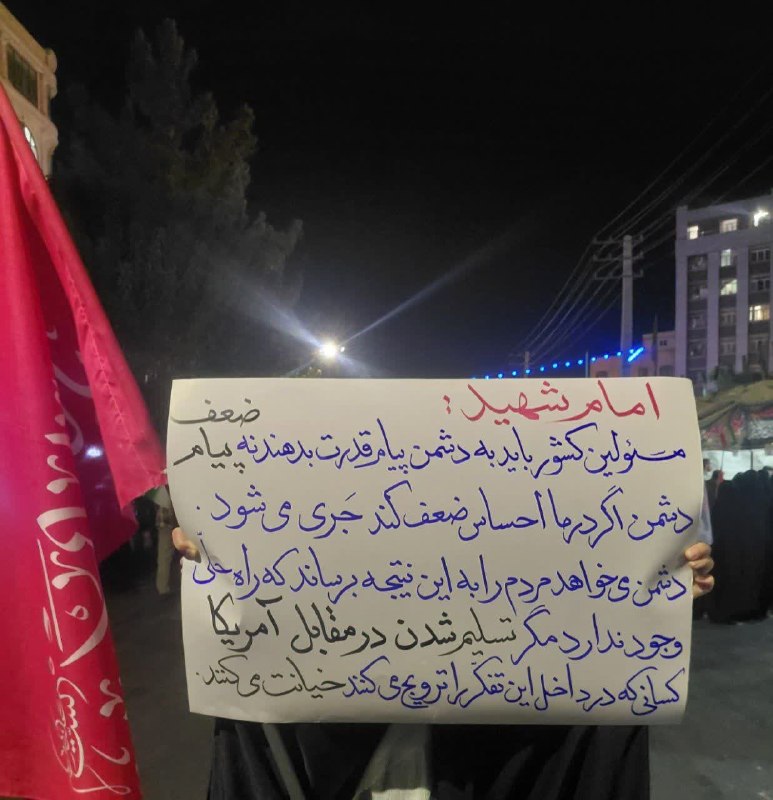 امام شهید:
مسئولین کشور باید به دشمن پیام قدرت بدهند نه پیام ضعف
دشمن اگر در ما احساس ضعف کند جَری می شود.
دشمن می خواهد مردم را به این نتیجه برساند که راه حلّی
وجود ندارد مگر تسلیم شدن در مقابل آمریکا
کسانی که در داخل این تفکّر را ترویج می کنند خیانت می کنند.